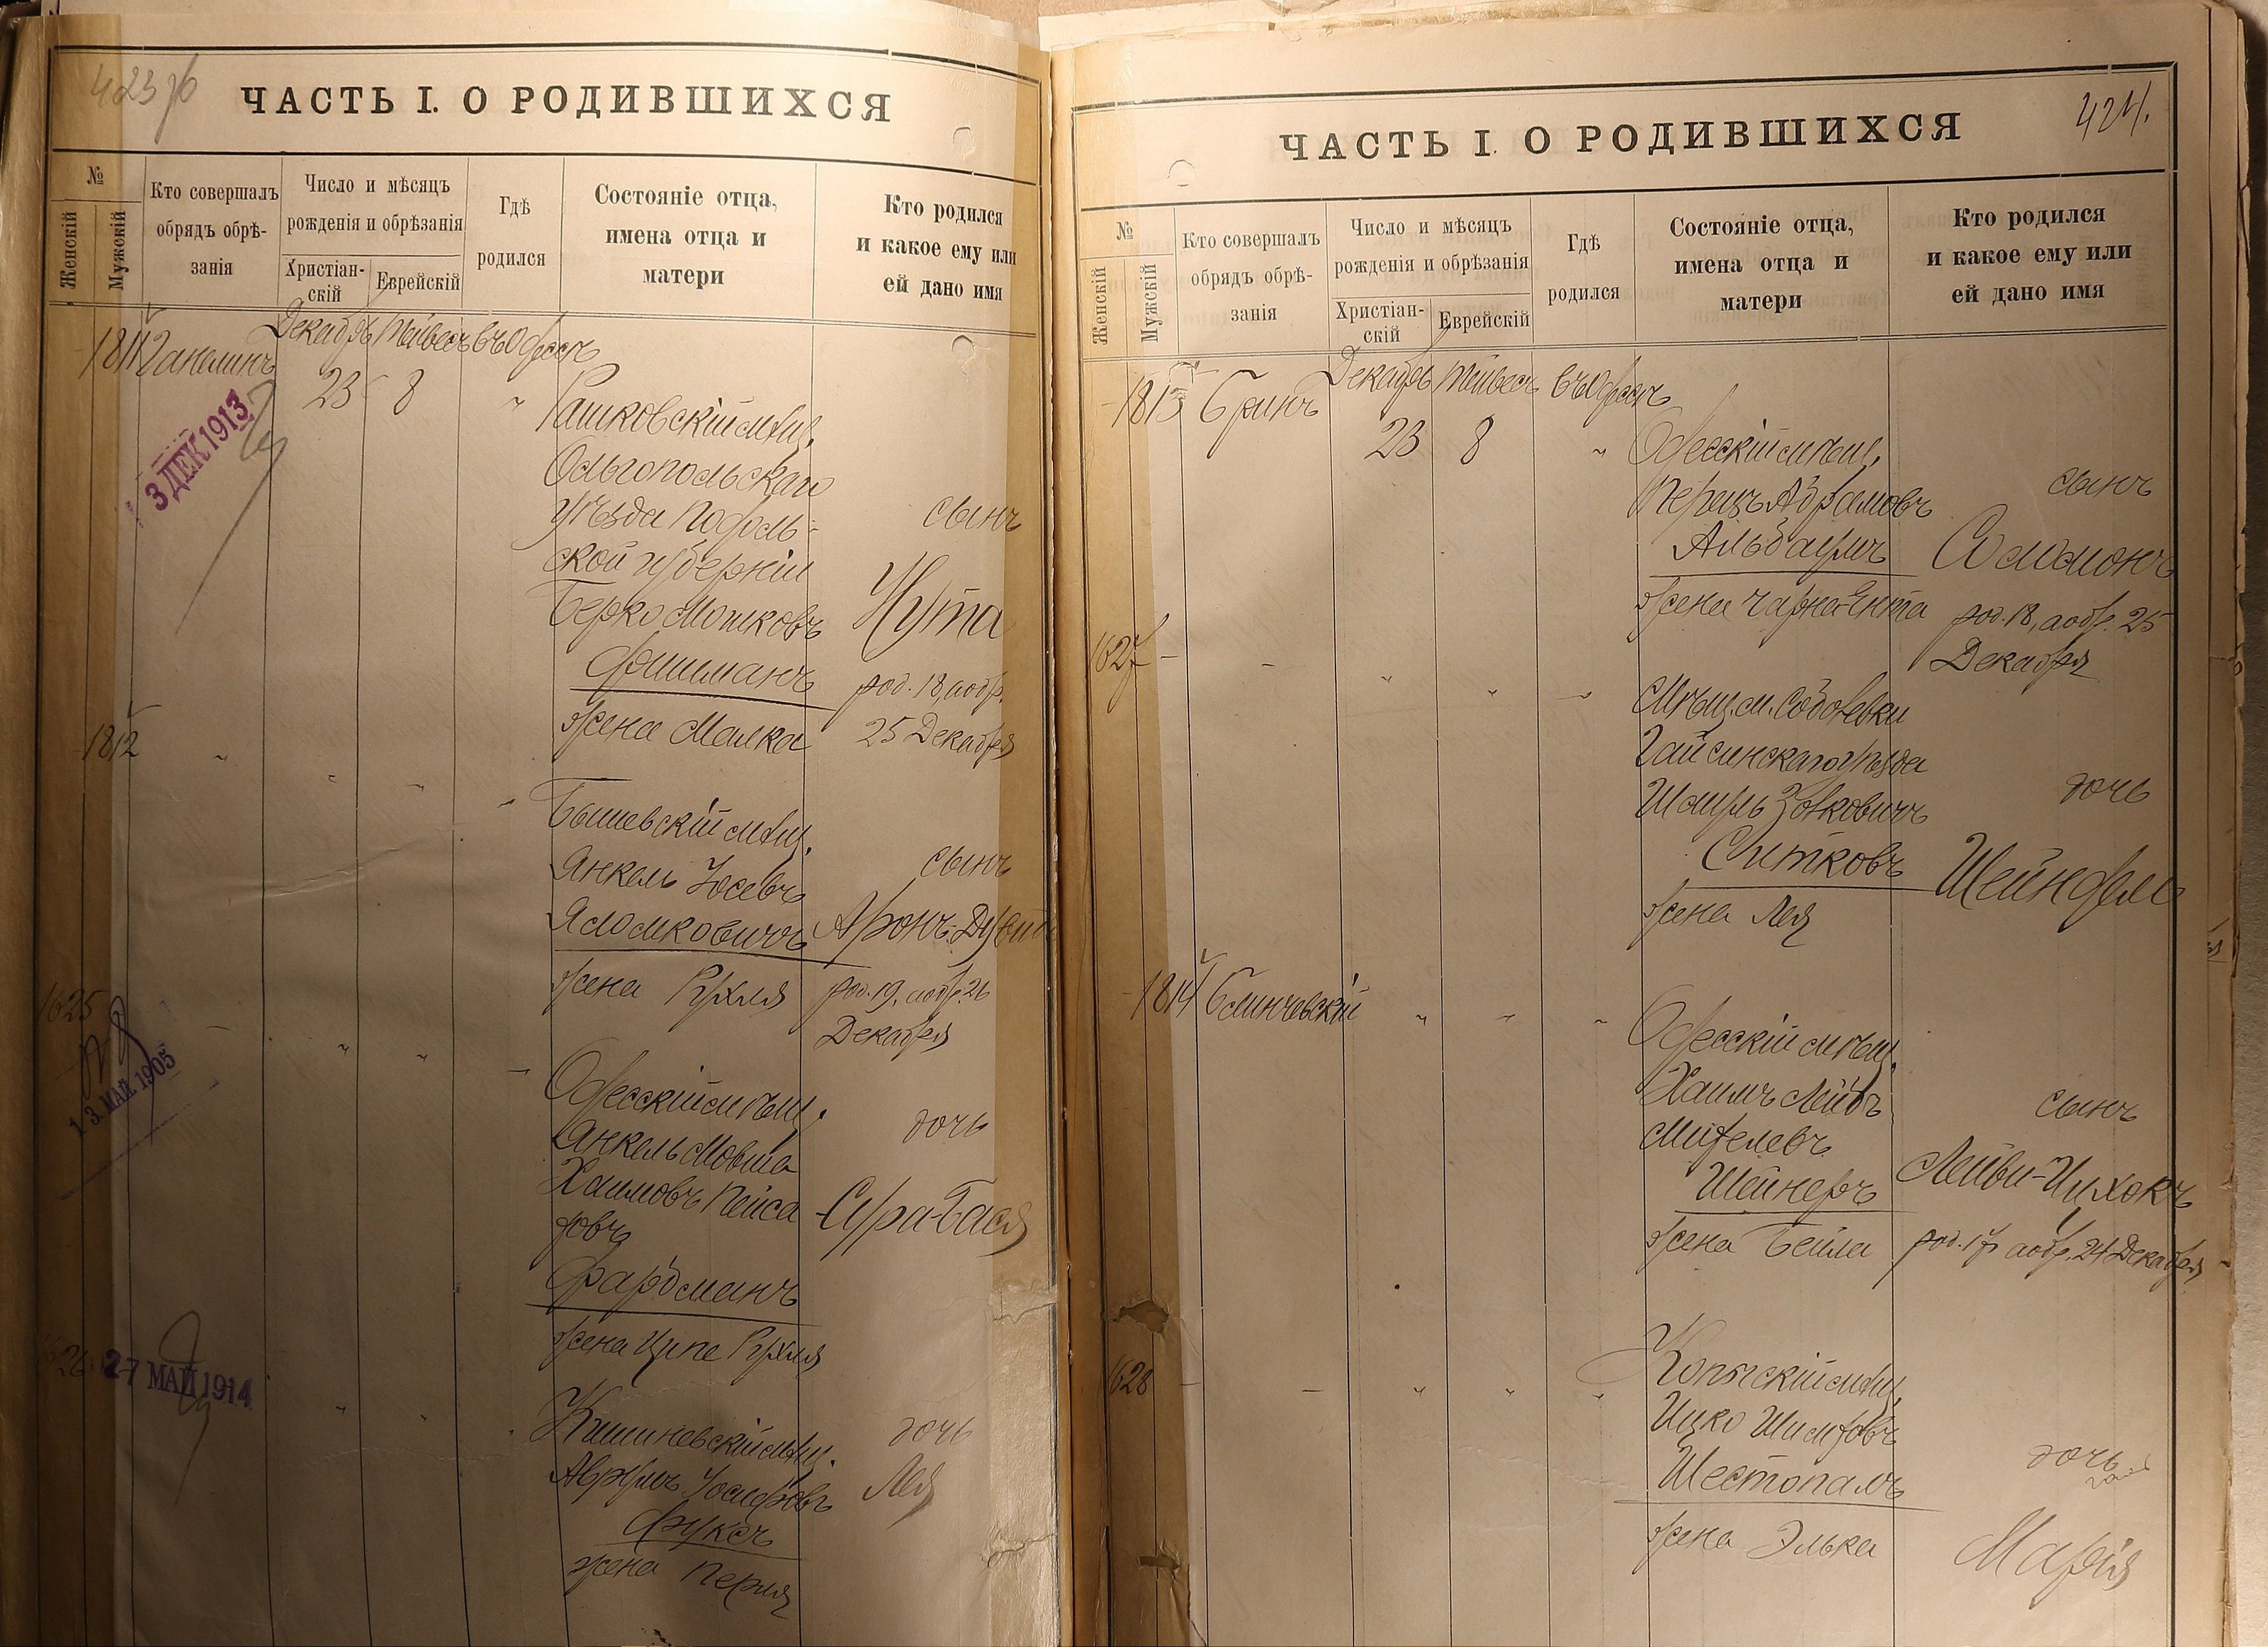 423 об
ЧАСТЬ I. О РОДИВШИХСЯ
№
Женскій
Мужскій
Кто совершалъ
обрядъ обрѣ-
занія
Число и мѣсяцъ
рожденія и обрѣзанія
Христіан-
скій
Еврейскій
Гдѣ
родился
Состояніе отца,
имена отца и
матери
Кто родился
и какое ему или
ей дано имя
1811 Ганелинъ
Декабрь Тейвесъ въ Одессѣ
23 8 "
Рашковскій мѣщ.
Ольгопольскаго
уѣзда Подоль-
ской губерніи
Берко Мошковъ
Фишманъ
жена Малка
сынъ
Нута
род. 18, а обр.
25 Декабря
3 ДЕК 1913
1812 " " " "
Бышевскій мѣщ.
Янкель Іосевъ
жена Рухля
сынъ
Аронъ-Дувидъ
род. 19, а обр. 26
Декабря
1625 - " " "
1 3. МАЙ 1905
Одесскій мѣщ.
Янкель Мовша
Хаимовъ Пейса
ховъ
Фарбманъ
жена Ципе Рухля
дочь
Сура-Бася
1626 " " "
27 МАЙ 1914
Кишиневскій мѣщ.
Аврумъ Іосифовъ
Фуксъ
жена Перля
дочь
Лея
424.
ЧАСТЬ I. О РОДИВШИХСЯ
№
Женскій
Мужскій
Кто совершалъ
обрядъ обрѣ-
занія
Число и мѣсяцъ
рожденія и обрѣзанія
Христіан-
скій
Еврейскій
Гдѣ
родился
Состояніе отца,
имена отца и
матери
Кто родился
и какое ему или
ей дано имя
1813 Гринъ
Декабрь Тейвесъ въ Одессѣ
23 8 "
Одесскій мѣщ.
Перецъ Абрамовъ
Альбаумъ
жена Чарна-Ента
сынъ
Соломонъ
род. 18, а обр. 25
Декабря
1627 - - " " "
Мѣщ. м. Соболевки
Гайсинскаго уѣзда
Шмуль Зейковичъ
Ситковъ
жена Лея
дочь
Шейндель
1814 Блинчевскій " " "
Одесскій мѣщ.
Хаимъ Лейбъ
Шейнеръ
жена Бейла
сынъ
Лейви-Ицхокъ
род. 17 а обр. 24 Декабря
1628 - - " " "
Копыскій мѣщ.
Ицко
Шестопалъ
жена Элька
дочь
Марія